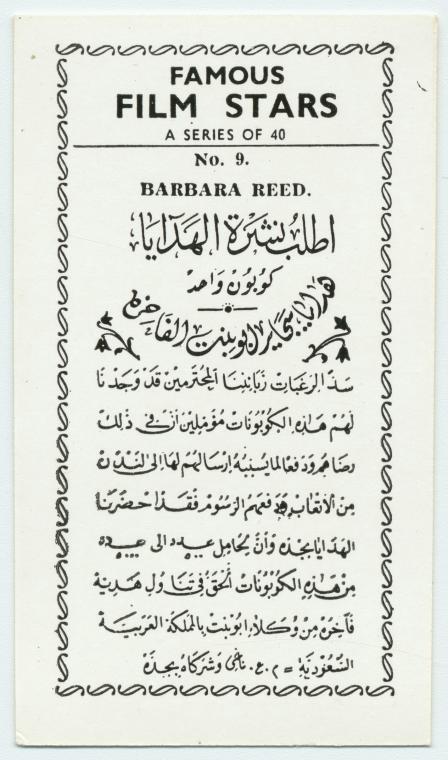 FAMOUS
FILM STARS
A SERIES OF 40
No. 9.
BARBARA REED.
اطلب نشرة الهدايا
كوبون واحد
هدايا سجاير ابوبنت الفاخرة
سدًا لرغبات زبائننا المحترمين قد وجدنا
لهم هذه الكوبونات مؤملين ان في ذلك
رضاهم ودفعًا لما يسببه ارسالهم لها الى لندن
من الاتعاب ودفعهم الرسوم فقد احضرنا
الهدايا بجده وان لحامل عدد الى
من هذه الكوبونات الحق في تناول هدية
فاخرة من وكلاء ابوبنت بالمملكة العربية
السعودية = م . ع . ناغي وشركاه بجدة